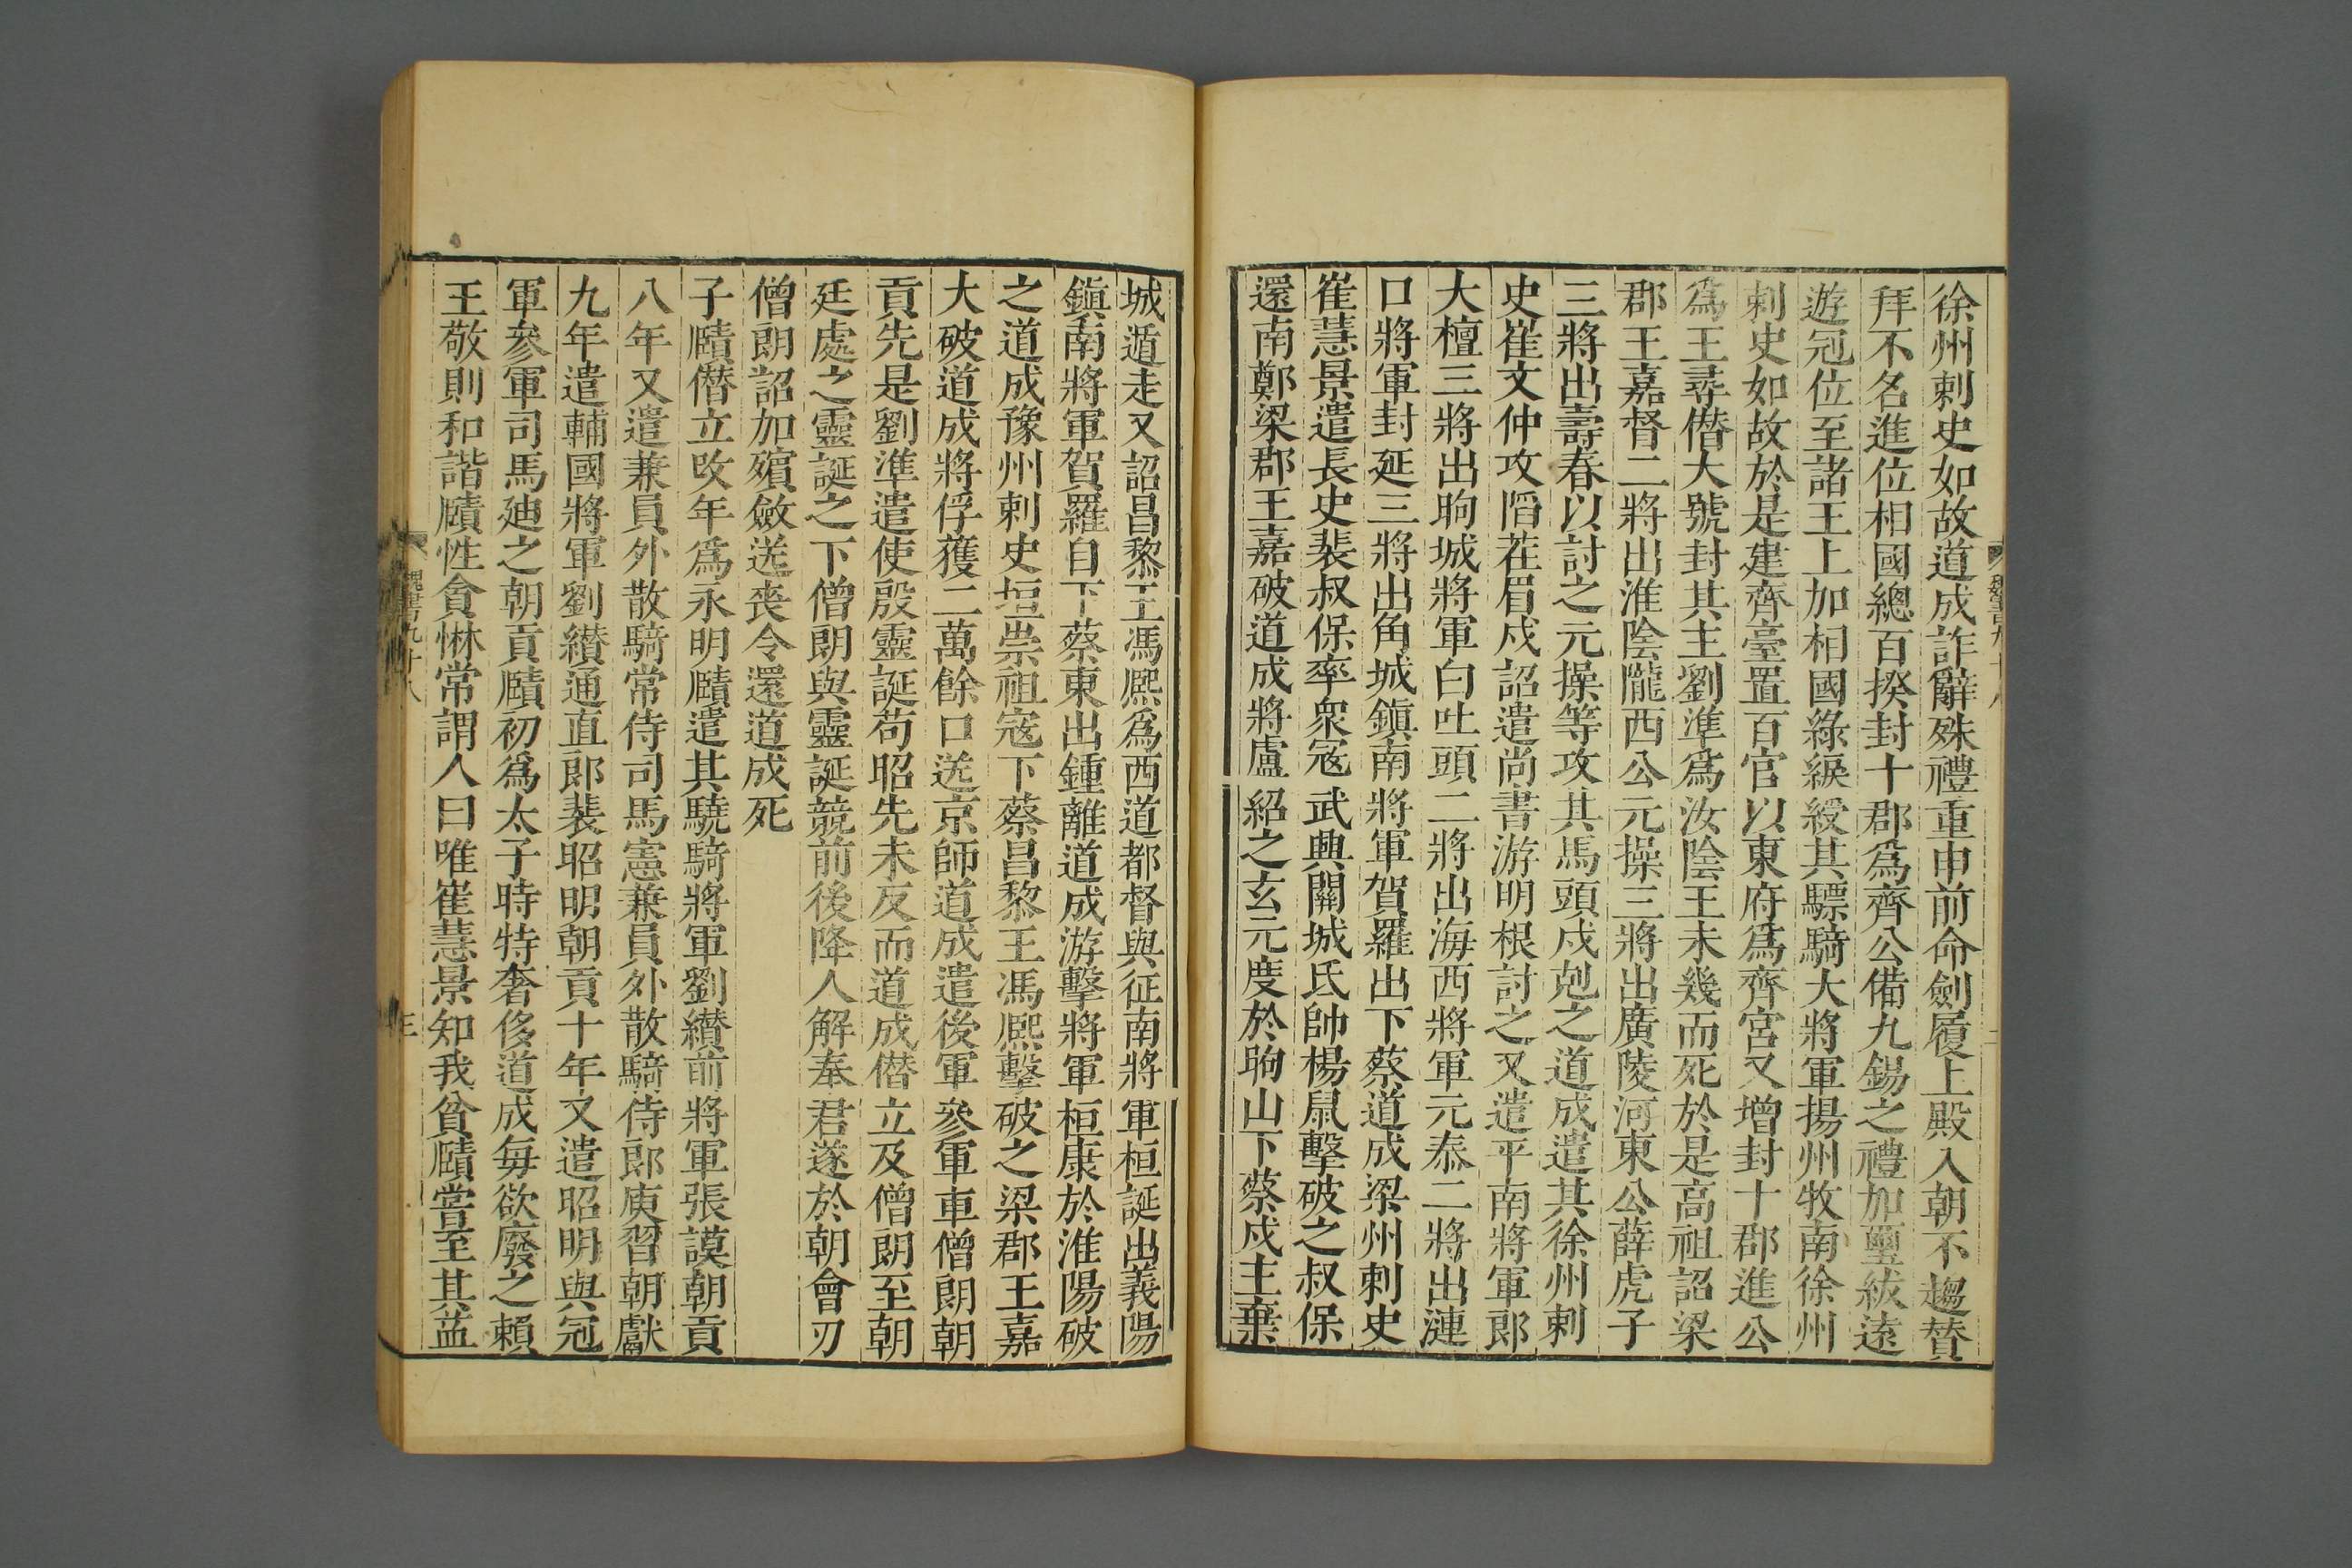 徐州刺史如故道成詐辭殊禮重申前命劍履上殿入朝不趨贊
拜不名進位相國總百揆封十郡爲齊公備九錫之禮加璽紱遠
遊冠位至諸王上加相國綠綟綬其驃騎大將軍揚州牧南徐州
刺史如故於是建齊臺置百官以東府爲齊宮又增封十郡進公
爲王尋僭大號封其主劉準爲汝陰王未幾而死於是高祖詔梁
郡王嘉督二將出淮陰隴西公元操三將出廣陵河東公薛虎子
三將出壽春以討之元操等攻其馬頭戍剋之道成遣其徐州刺
史崔文仲攻䧟茬眉戍詔遣尚書游明根討之又遣平南將軍郎
大檀三將出朐城將軍白吐頭二將出海西將軍元泰二將出漣
口將軍封延三將出角城鎭南將軍賀羅出下蔡道成梁州刺史
崔慧景遣長史裴叔保率衆寇武興關城氐帥楊鼠擊破之叔保
還南鄭梁郡王嘉破道成將盧紹之玄元度於朐山下蔡戍主棄
城遁走又詔昌黎王馮熈爲西道都督與征南將軍桓誕出義陽
鎭南將軍賀羅自下蔡東出鍾離道成游擊將軍桓康於淮陽破
之道成豫州刺史垣崇祖寇下蔡昌黎王馮熈擊破之梁郡王嘉
大破道成將俘獲二萬餘口送京師道成遣後軍參軍車僧朗朝
貢先是劉準遣使殷靈誕苟昭先未反而道成僭立及僧朗至朝
廷處之靈誕之下僧朗與靈誕競前後降人解奉君遂於朝會刃
僧朗詔加殯斂送喪令還道成死
子賾僭立改年爲永明賾遣其驍騎將軍劉纘前將軍張謨朝貢
八年又遣兼員外散騎常侍司馬憲兼員外散騎侍郎庾習朝獻
九年遣輔國將軍劉纘通直郎裴昭明朝貢十年又遣昭明與冠
軍參軍司馬廸之朝貢賾初爲太子時特奢侈道成每欲廢之賴
王敬則和諧賾性貪惏常謂人曰唯崔慧景知我貧賾嘗至其益
魏書九十八
三